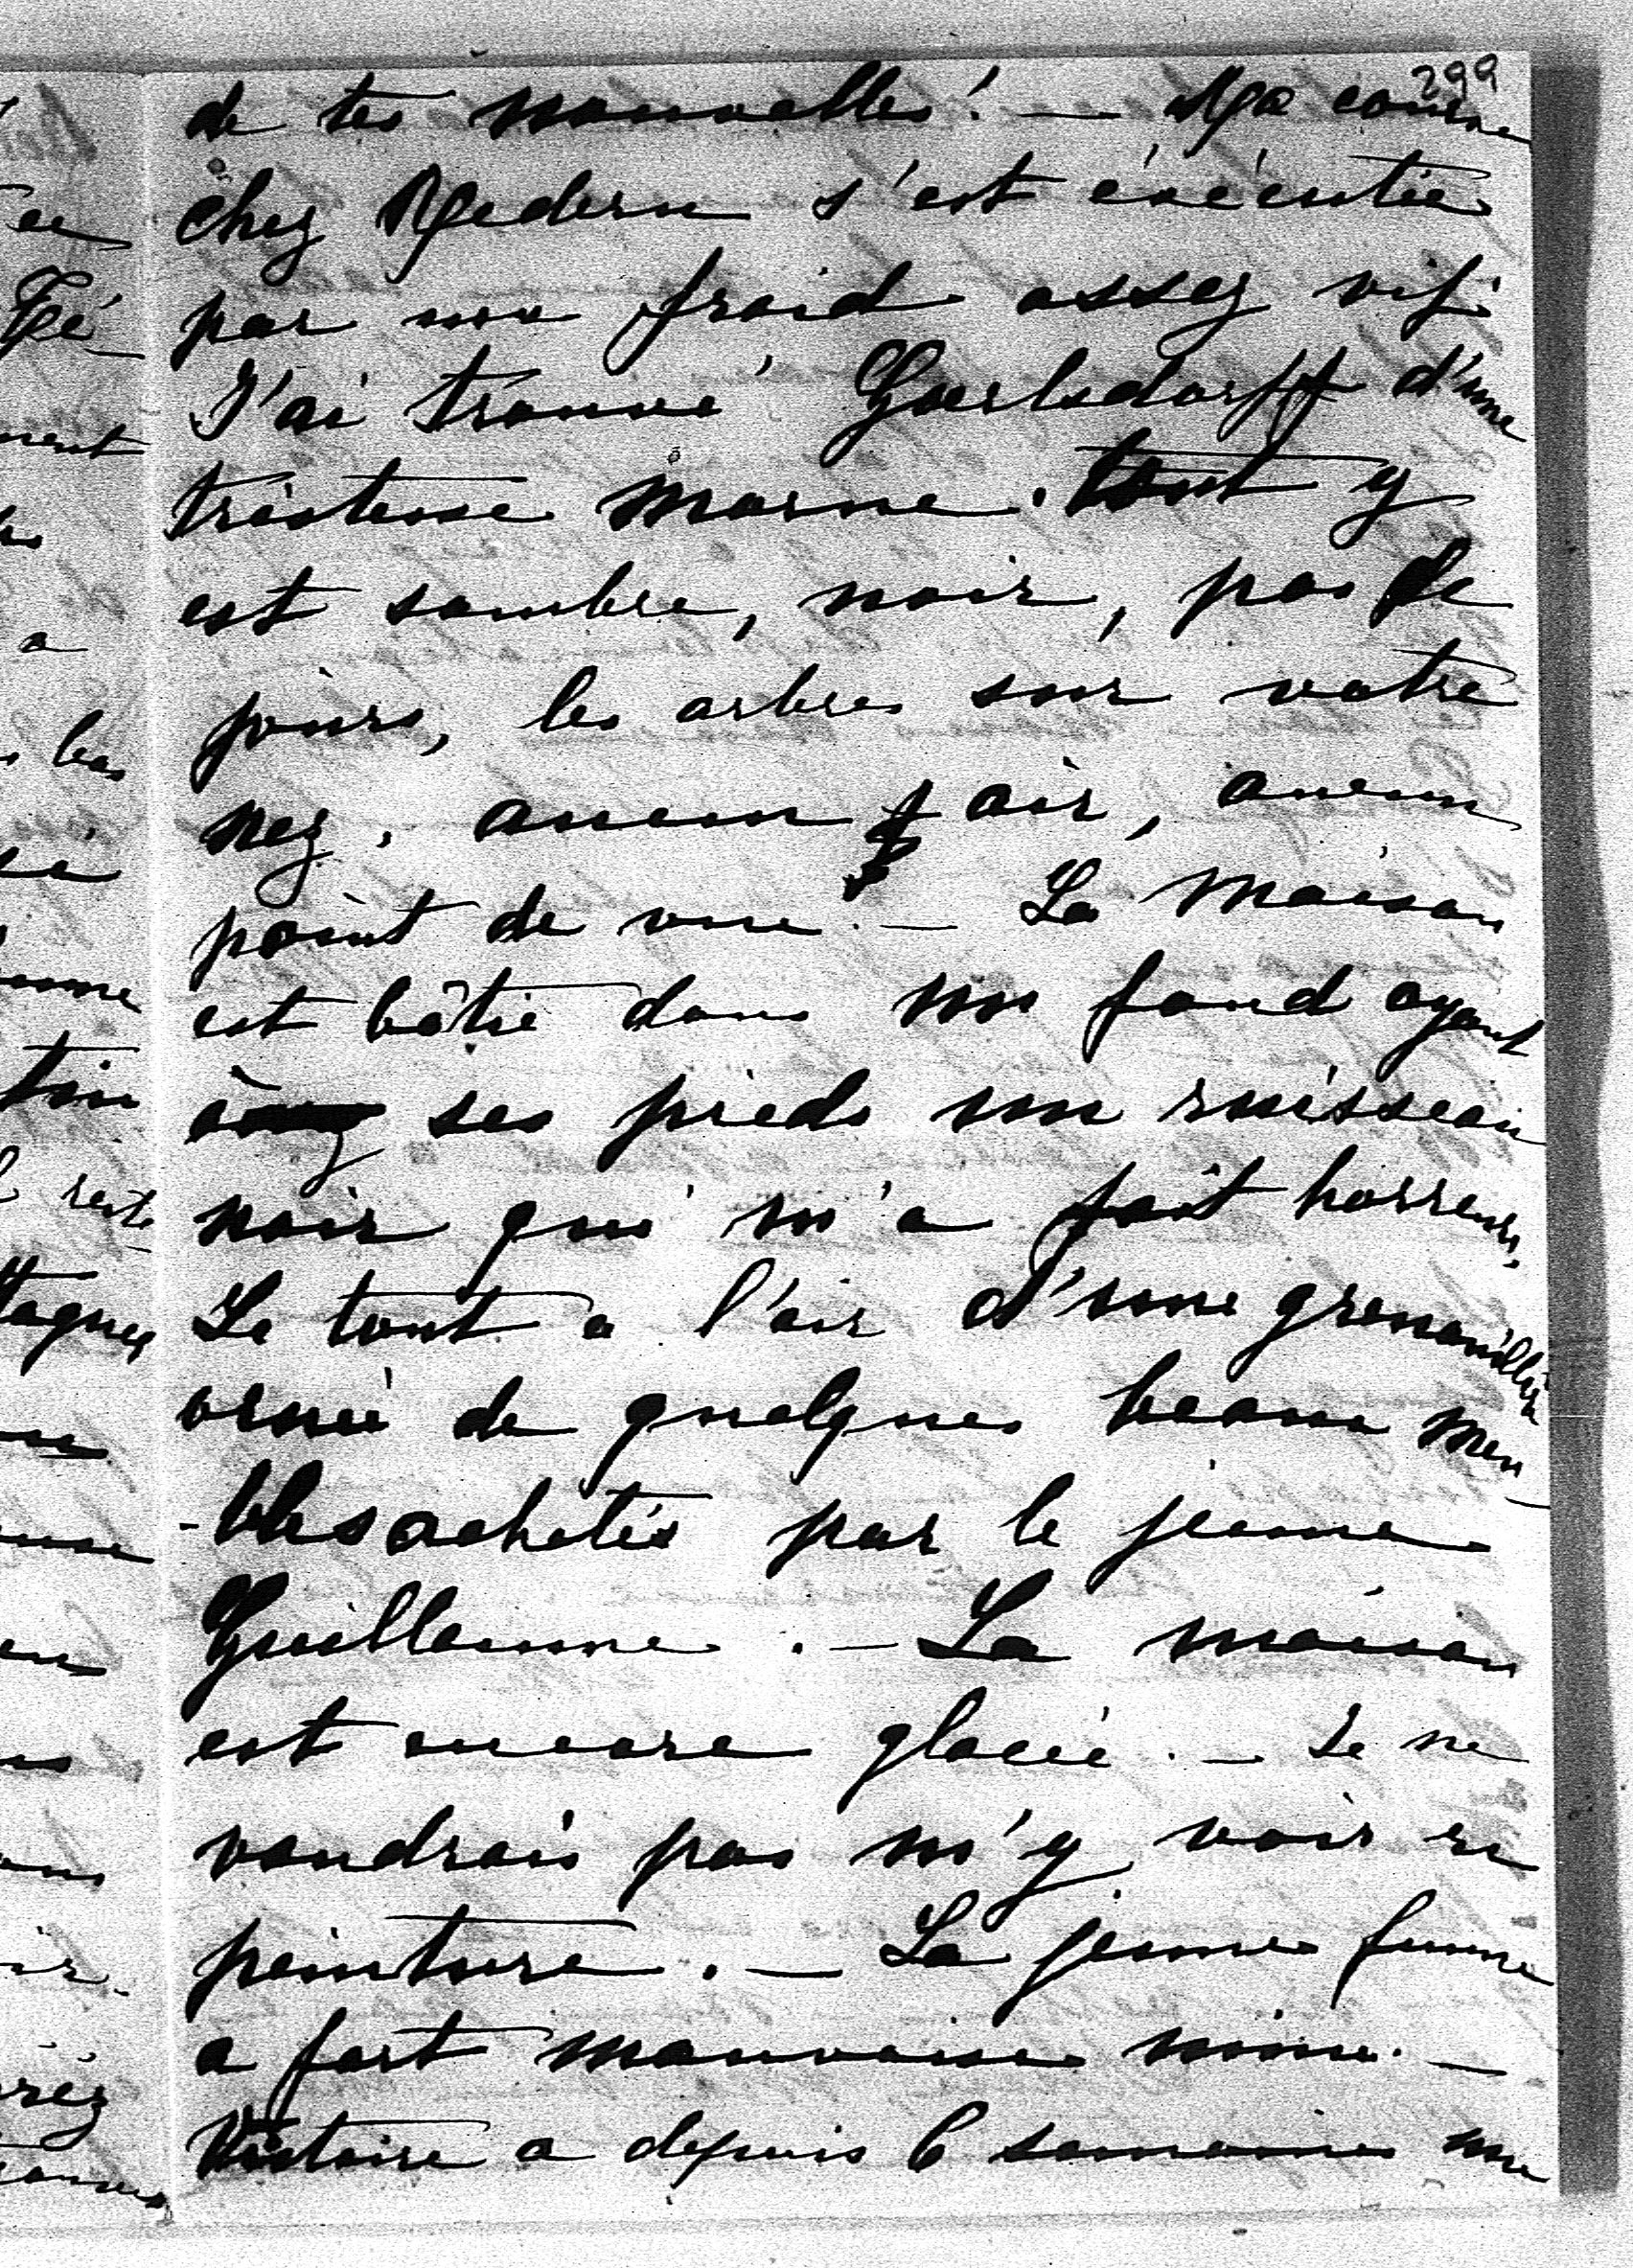 299
de tes nouvelles! — Ma course
chez Redern s'est éxécutée
par un froid assez vif.
J'ai trouvé Goerlsdorff d'une
tristesse morne. tout y
est sombre, noir, pas de
jours, les arbres sur votre
nez. aucun air, aucun
point de vue. — La maison
est bâtie dans un fond ayant
à ses pieds un ruisseau
noir qui m'a fait horreur,
Le tout a l'air d'une grenouillère
ornée de quelques beaux meu
-bles achetés par le jeune
Guillaume. — La maison
est encore glacée. — Je ne
voudrais pas m'y voir en
peinture. — La jeune femme
a fort mauvaise mine. —
Victoire a depuis 6 semaines une